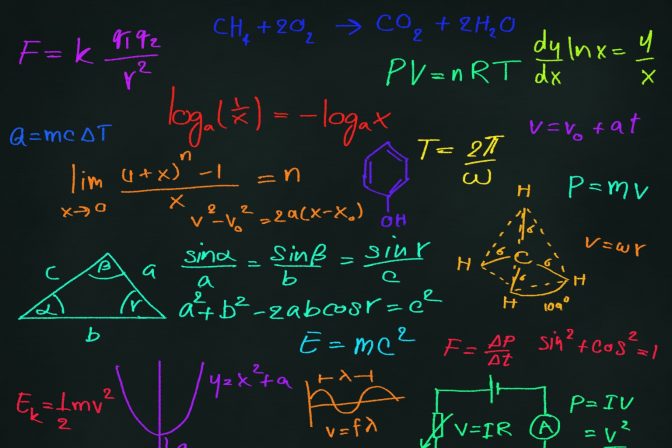 F = k q₁q₂/r²
CH₄ + 2O₂ → CO₂ + 2H₂O
dy/dx lnx = y/x
PV = nRT
logₐ(1/x) = -logₐx
Q = mcΔT
v = v₀ + at
T = 2π/ω
lim x→0 ((1+x)ⁿ - 1)/x = n
P = mv
v² - v₀² = 2a(x - x₀)
OH
H
C
H
H
H
6
6
6
6
109°
v = ωr
sinα/a = sinβ/b = sinr/c
a² + b² - 2abcosr = c²
β
c
a
α
r
b
E = mc²
F = ΔP/Δt
sin² + cos² = 1
Eₖ = 1/2 mv²
y = x² + a
λ
v = fλ
V = IR
A
P = IV
= v²